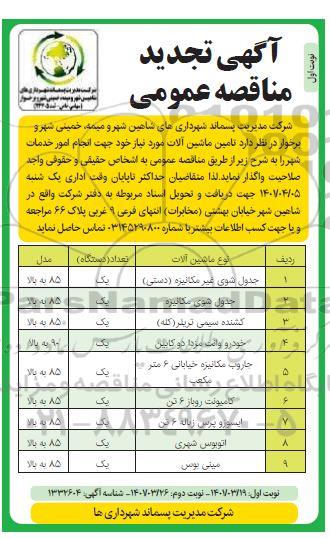 نوبت اول
آگهی تجدید
مناقصه عمومی
شرکت مدیریت پسماند شهرداری های
شاهین شهر و میمه، خمینی شهر و برخوار
شرکت مدیریت پسماند شهرداری های شاهین شهر و میمه، خمینی شهر و
برخوار در نظر دارد تامین ماشین آلات مورد نیاز خود جهت انجام امور خدمات
شهر را به شرح زیر از طریق مناقصه عمومی به اشخاص حقیقی و حقوقی واجد
صلاحیت واگذار نماید. لذا متقاضیان حداکثر تاپایان وقت اداری یک شنبه
۱۴۰۱/۰۴/۰۵ جهت دریافت و تحویل اسناد مربوطه به دفتر شرکت واقع در
شاهین شهر خیابان بهشتی (مخابرات) انتهای فرعی ۹ غربی پلاک ۶۶ مراجعه
و یا جهت کسب اطلاعات بیشتر با شماره ۰۳۱۴۵۲۹۰۸۰۰ تماس حاصل نماید
ردیف نوع ماشین آلات تعداد(دستگاه) مدل
۱ جدول شوی غیر مکانیزه (دستی) یک ۸۵ به بالا
۲ جدول شوی مکانیزه یک ۸۵ به بالا
۳ کشنده سیمی تریلر(کله) یک ۸۵ به بالا
۴ خودرو وانت مزدا دو کابین یک ۹۰ به بالا
۵ جاروب مکانیزه خیابانی ۶ متر مکعب یک ۸۵ به بالا
۶ کامیونت روباز ۶ تن یک ۸۵ به بالا
۷ ایسوزو پرس زباله ۶ تن یک ۸۵ به بالا
۸ اتوبوس شهری یک ۸۵ به بالا
۹ مینی بوس یک ۸۵ به بالا
۰۲۱-۸۸۳۴۹۶۷۰-۵
نوبت اول: ۱۴۰۱/۰۳/۱۹- نوبت دوم: ۱۴۰۱/۰۳/۲۶- شناسه آگهی: ۱۳۳۲۶۰۴
شرکت مدیریت پسماند شهرداری ها